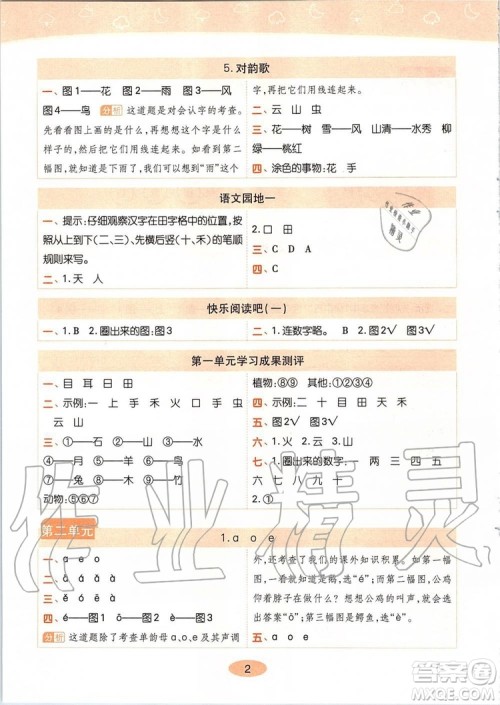 5.对韵歌
一、图1——花 图2——雨 图3——风
图4——鸟 分析 这道题是对会认字的考查。
先看看图上画的是什么，再想想是什么
样子的，然后把它们用线连起来。如第二
幅图，就知道是下雨了，我们找到“雨”这个
字，再把它们用线连起来。
二、云 山 虫
三、花——树 雪——风 山清——水秀 柳
绿——桃红
四、涂色的事物：花 手
语文园地一
一、提示：仔细观察汉字在田字格中的位置，
按从上到下(二、三)、先横后竖(十、禾)的笔顺
规则来写。
二、1.天 人
2.口 田
三、C D A
四、C
快乐阅读吧(一)
一、1.B 2.圈出来的图：图3
二、1.连数字略。 B 2.图2√ 图3√
第一单元学习成果测评
一、目 耳 日 田
二、示例：一 上 手 禾 火 口 手 虫
云 山
三、①——石 ②——山 ③——水
④——兔 ⑤——木 ⑥——鸟
动物：⑤⑥⑦
植物：⑧⑨ 其他：①②③④
四、示例：二 十 目 田 天 禾
五、图2√ 图3√
六、1.火 2.云
七、1.圈出来的数字：一 两 三 四 五
六 七 八 九 十
2.①
第二单元
1.a o e
一、a e o
二、ɑ̄ ɑ́ ǎ à
三、ě ó é è ē
四、é——图1 ǒ——图2 è——图3
分析 这道题除了考查单韵母a、o、e及其声调
外，还考查了我们的课外知识积累。如第一
幅图，图上画的是鹅，选“é”；第二幅图，公鸡
仰着脖子在做什么？想想公鸡的叫声，就能
选出答案“ō”；第三幅图是鳄鱼，选“è”。
五、a o e
2
作业精灵
答案圈
MXQE.COM